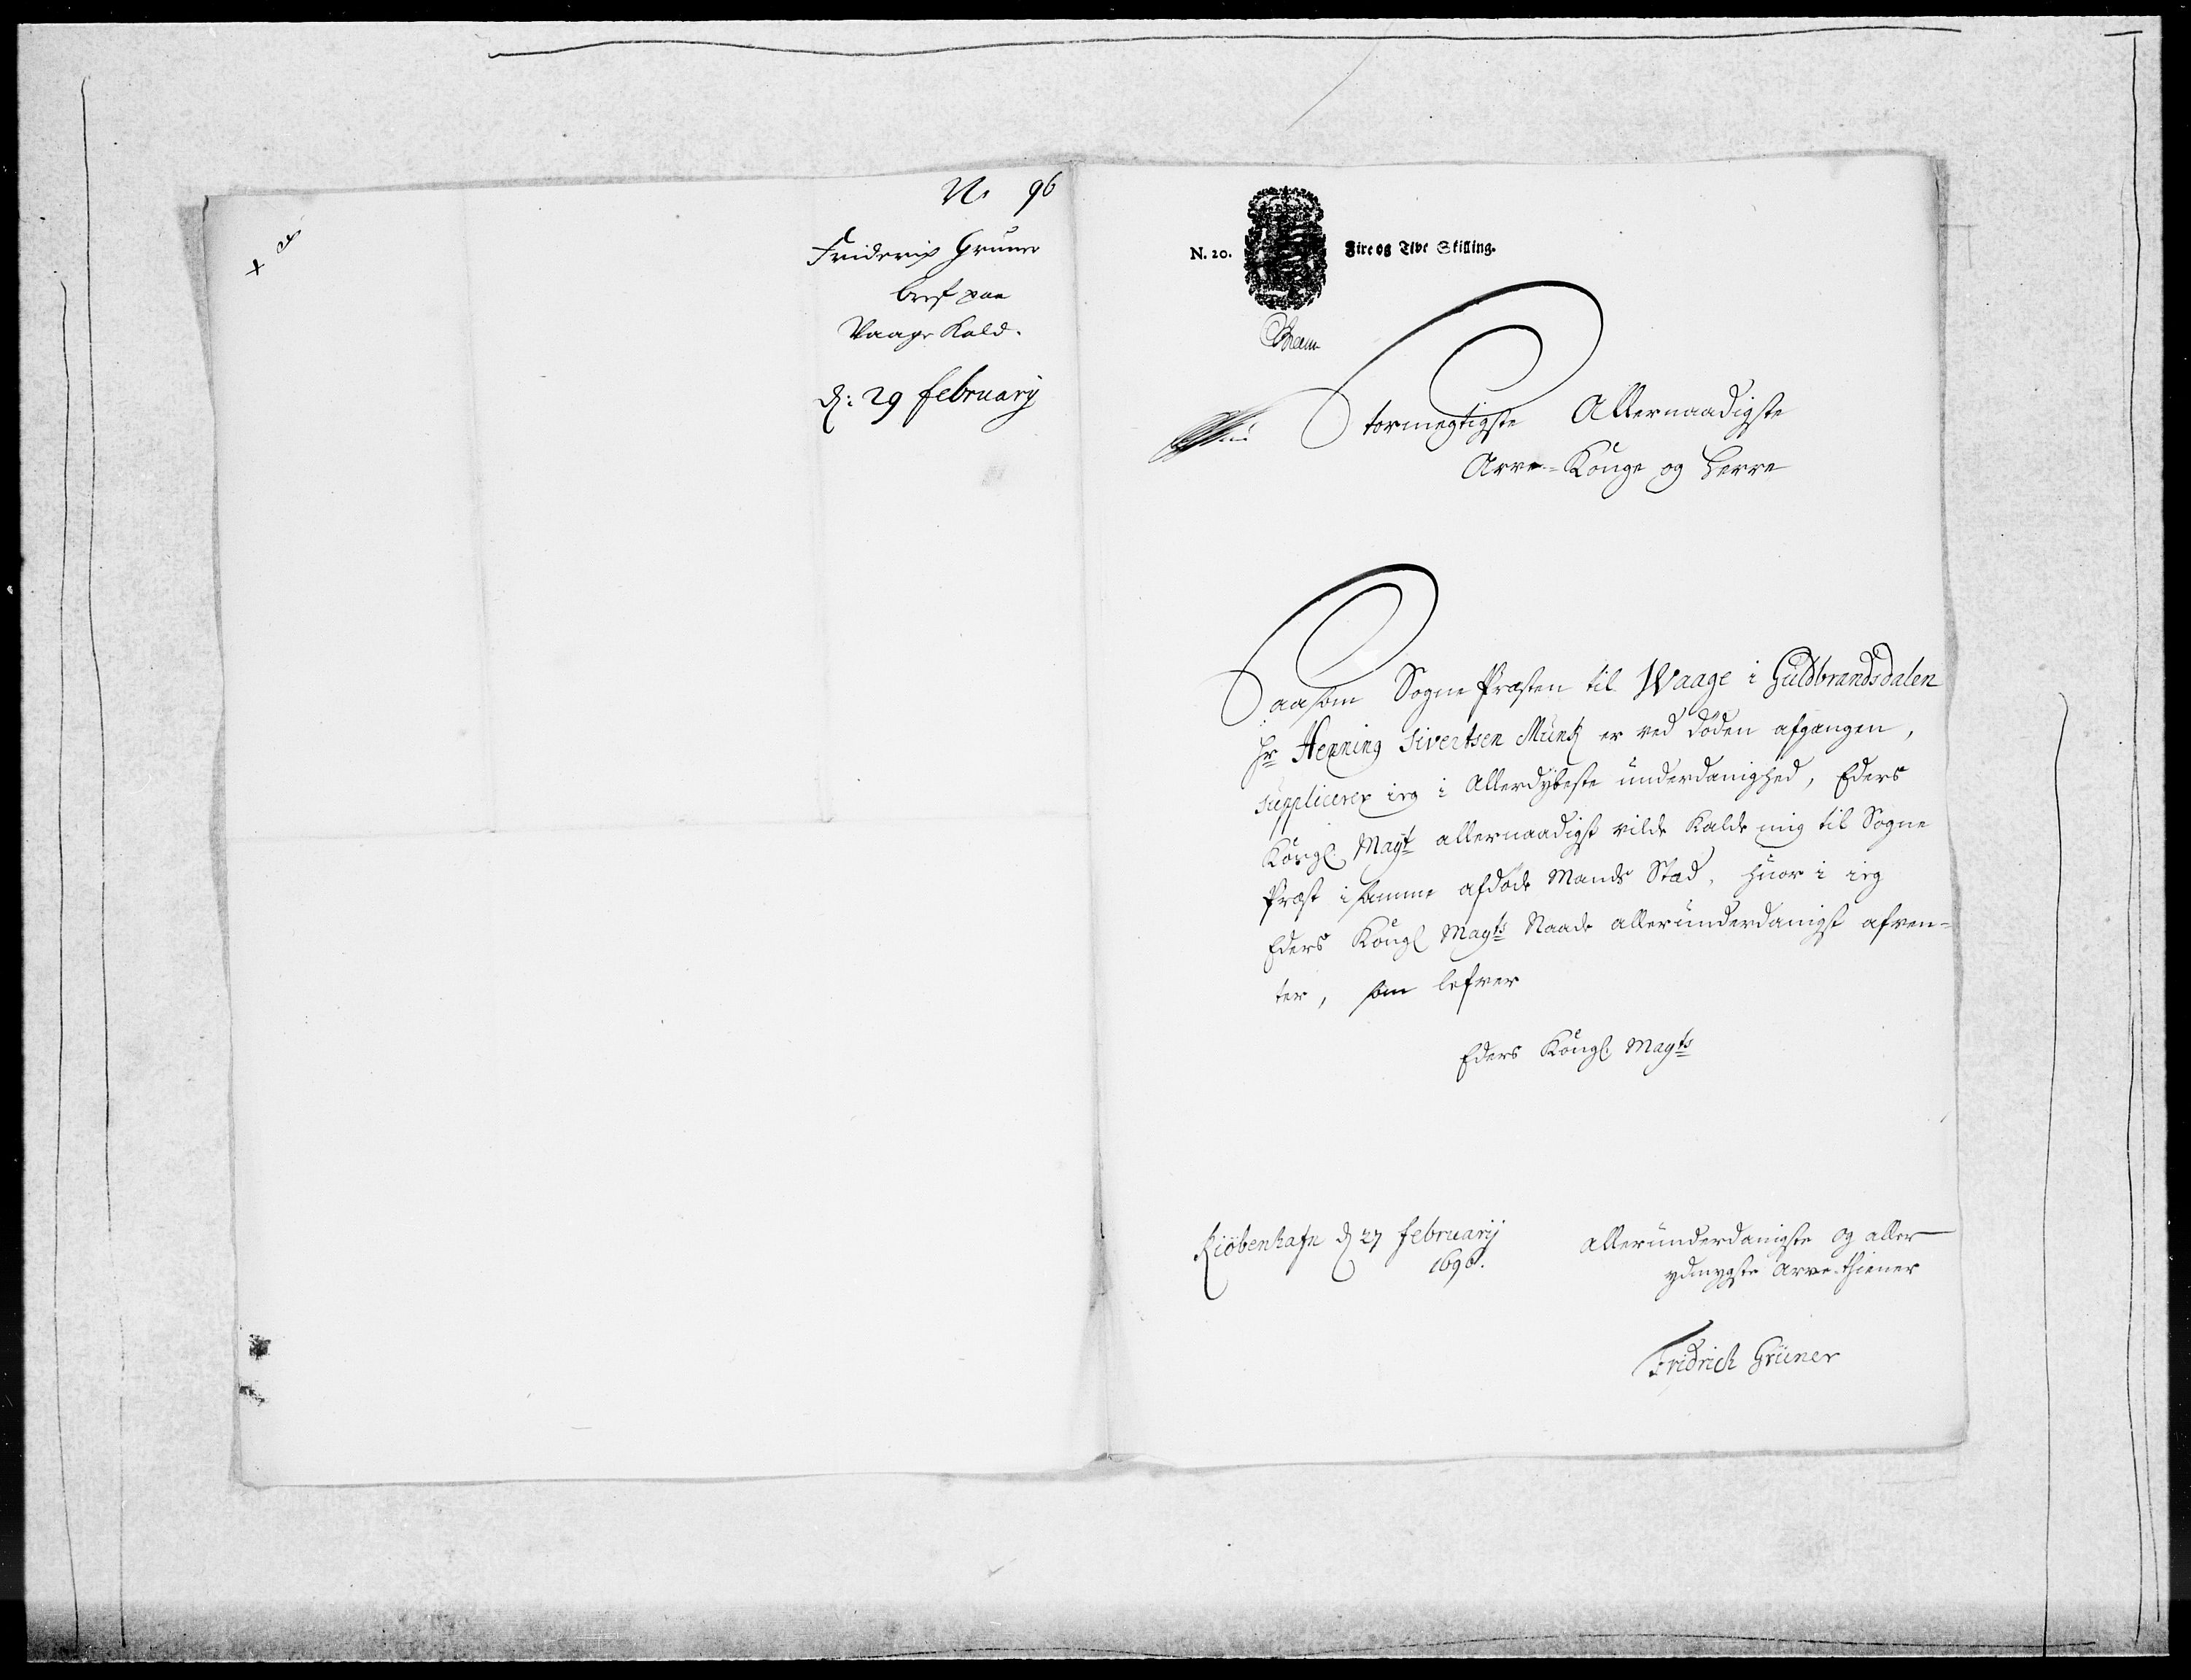 N. 96
Friderich Gruner
bref paa
Vaage Kald.
d: 29 february
N. 20. Fire og Tive Skilling.
Stormegtigste Allernaadigste
Arve-Konge og Herre
Saasom Sogne Præsten til Waage i Guldbrandsdalen
Hr Henning Sivertsen Munk er ved döden afgangen,
supplicerer ieg i Allerdybeste underdanighed, Eders
Kongl Mayt allernaadigst vilde Kalde mig til Sogne
Præst i samme afdöde Mands Stæd, huor i ieg
Eders Kongl Mayts Naade allerunderdanigst afven-
ter, som lefver
Eders Kongl: Mayts
Kiöbenhafn d 27 february
1696.
allerunderdanigste og aller
ydmygste Arve-thiener
Fridrich Grüner